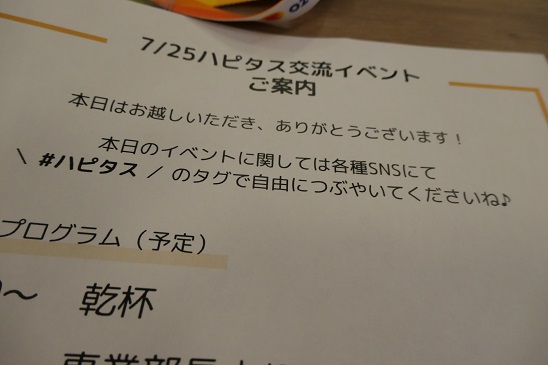 7/25ハピタス交流イベント
ご案内
本日はお越しいただき、ありがとうございます！
本日のイベントに関しては各種SNSにて
\ #ハピタス / のタグで自由につぶやいてくださいね♪
プログラム（予定）
～ 乾杯
事業部長